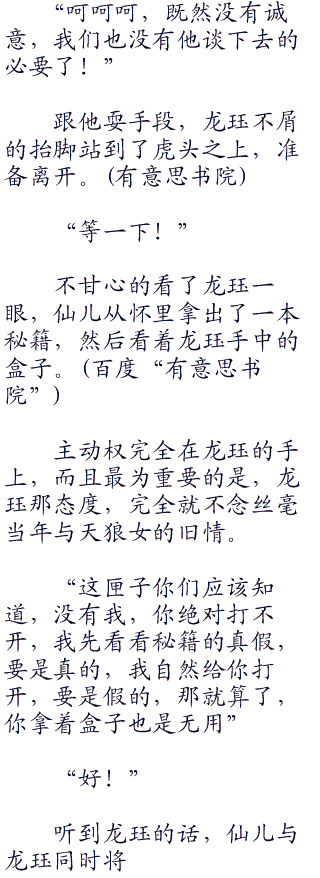 “呵呵呵，既然没有诚
意，我们也没有他谈下去的
必要了！”
跟他耍手段，龙珏不屑
的抬脚站到了虎头之上，准
备离开。(有意思书院)
“等一下！”
不甘心的看了龙珏一
眼，仙儿从怀里拿出了一本
秘籍，然后看着龙珏手中的
盒子。(百度“有意思书
院”)
主动权完全在龙珏的手
上，而且最为重要的是，龙
珏那态度，完全就不念丝毫
当年与天狼女的旧情。
“这匣子你们应该知
道，没有我，你绝对打不
开，我先看看秘籍的真假，
要是真的，我自然给你打
开，要是假的，那就算了，
你拿着盒子也是无用”
“好！”
听到龙珏的话，仙儿与
龙珏同时将